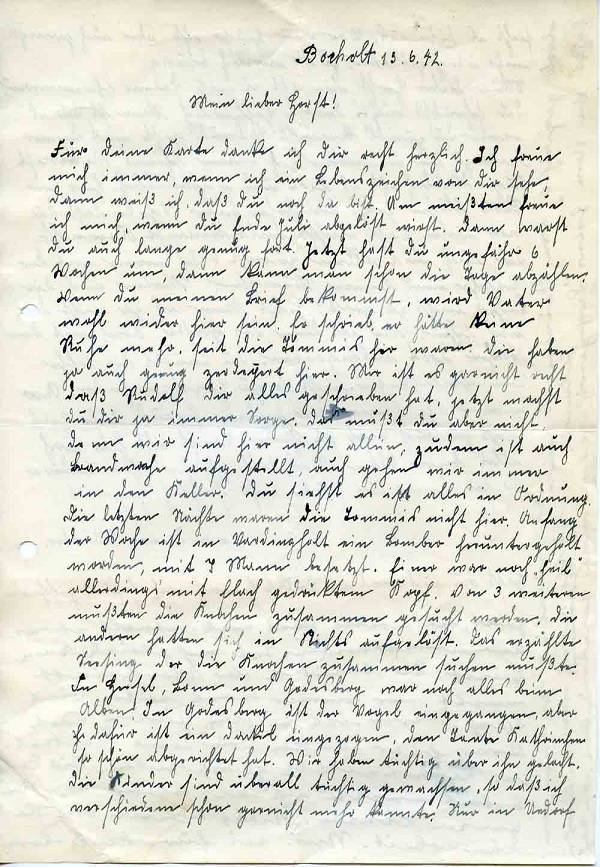 Bocholt 13.6.42.
Mein lieber Horst!
Für deine Karte danke ich dir recht herzlich. Ich freue
mich immer, wenn ich ein Lebenszeichen von dir sehe,
dann weiß ich, daß du noch da bist. Am meißten freue
ich mich, wenn du Ende Juli abgelöst wirst. Dann warst
du auch lange genug fort. Jetzt hast du ungefähr 6
Wochen um, dann kann man schon die Tage abzählen.
Wenn du meinen Brief bekommst, wird Vater
wohl wider hier sein. Er schrieb, er hätte keine
Ruhe mehr, seit die Tommis hier waren. Die haben
ja auch genug zerdeppert hier. Mir ist es garnicht recht
daß Rudolf dir alles geschrieben hat, jetzt machst
du dir ja immer Sorge. Das mußt du aber nicht.
Denn wir sind hier nicht allein, zudem ist auch
Brandwache aufgestellt, auch gehen wir immer
in den Keller. Du siehst es ist alles in Ordnung.
Die letzten Nächte waren die Tommis nicht hier. Anfang
der Woche ist in Vardingholt ein Bomber heruntergeholt
worden, mit 7 Mann besetzt. Einer war noch "heil"
allerdings mit flach gedrücktem Kopf. Von 3 weiteren
mußten die Knochen zusammen gesucht werden. Die
andern hatten sich in Nichts aufgelöst. Das erzählte
der die Knochen zusammen suchen mußte.
In Hersel, Bonn und Godesberg war noch alles beim
Alten. In Godesberg ist der Vogel eingegangen, aber
dafür ist ein Dackel eingezogen, den Tante Kathrinchen
so schön abgerichtet hat. Wir haben tüchtig über ihn gelacht.
Die Kinder sind überall tüchtig gewachsen, so daß ich
verschiedene schon garnicht mehr kannte. Nur in